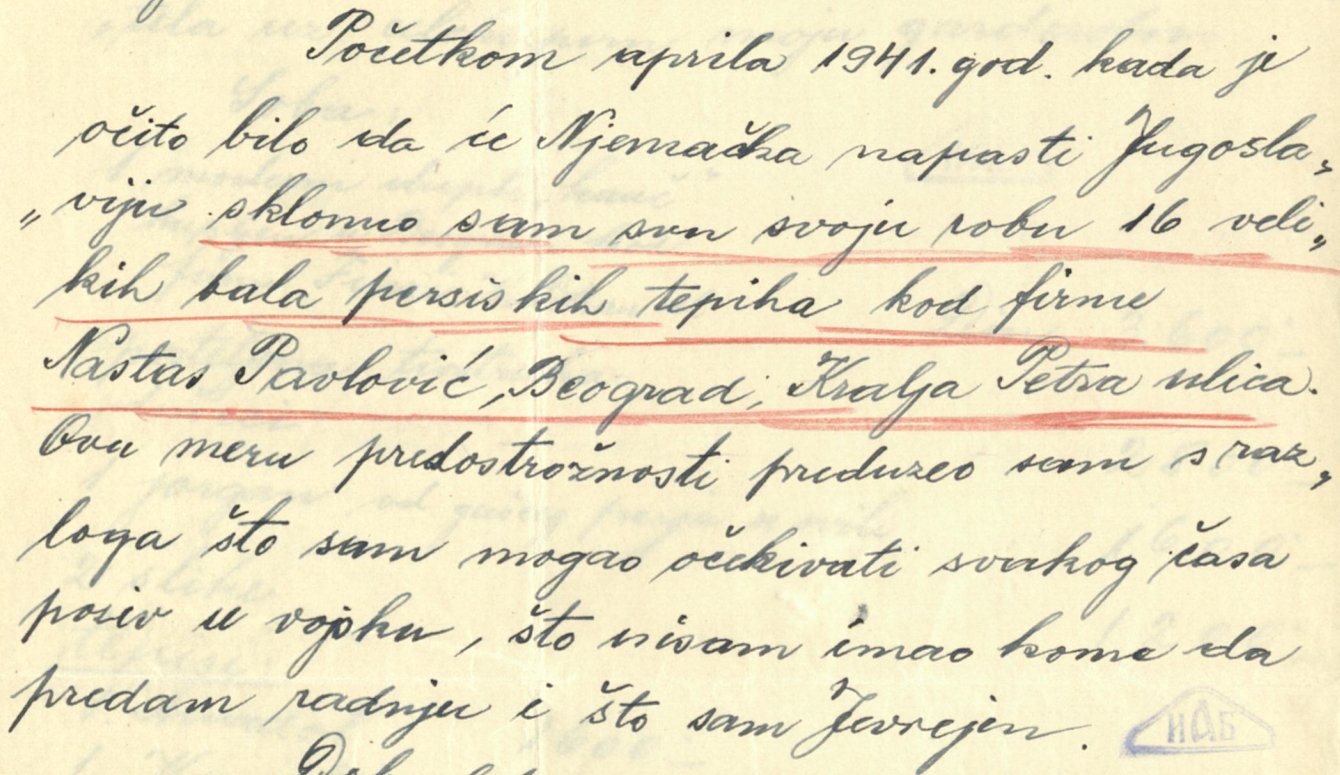 Početkom aprila 1941. god. kada je
očito bilo da će Njemačka napasti Jugosla„
„viju sklonuo sam svu svoju robu 16 veli„
kih bala persiskih tepiha kod firme
Nastas Pavlović, Beograd, Kralja Petra ulica.
Ovu meru predostrožnosti preduzeo sam s raz„
loga što sam mogao očekivati svakog časa
posiv u vojsku, što nisam imao kome da
predam radnju i što sam Jevrejin.
ИАБ